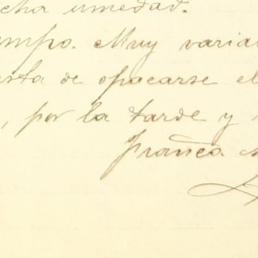 cha umedad.
ampo. Muy varia
sta de opacarse el
, por la tarde y
Franca